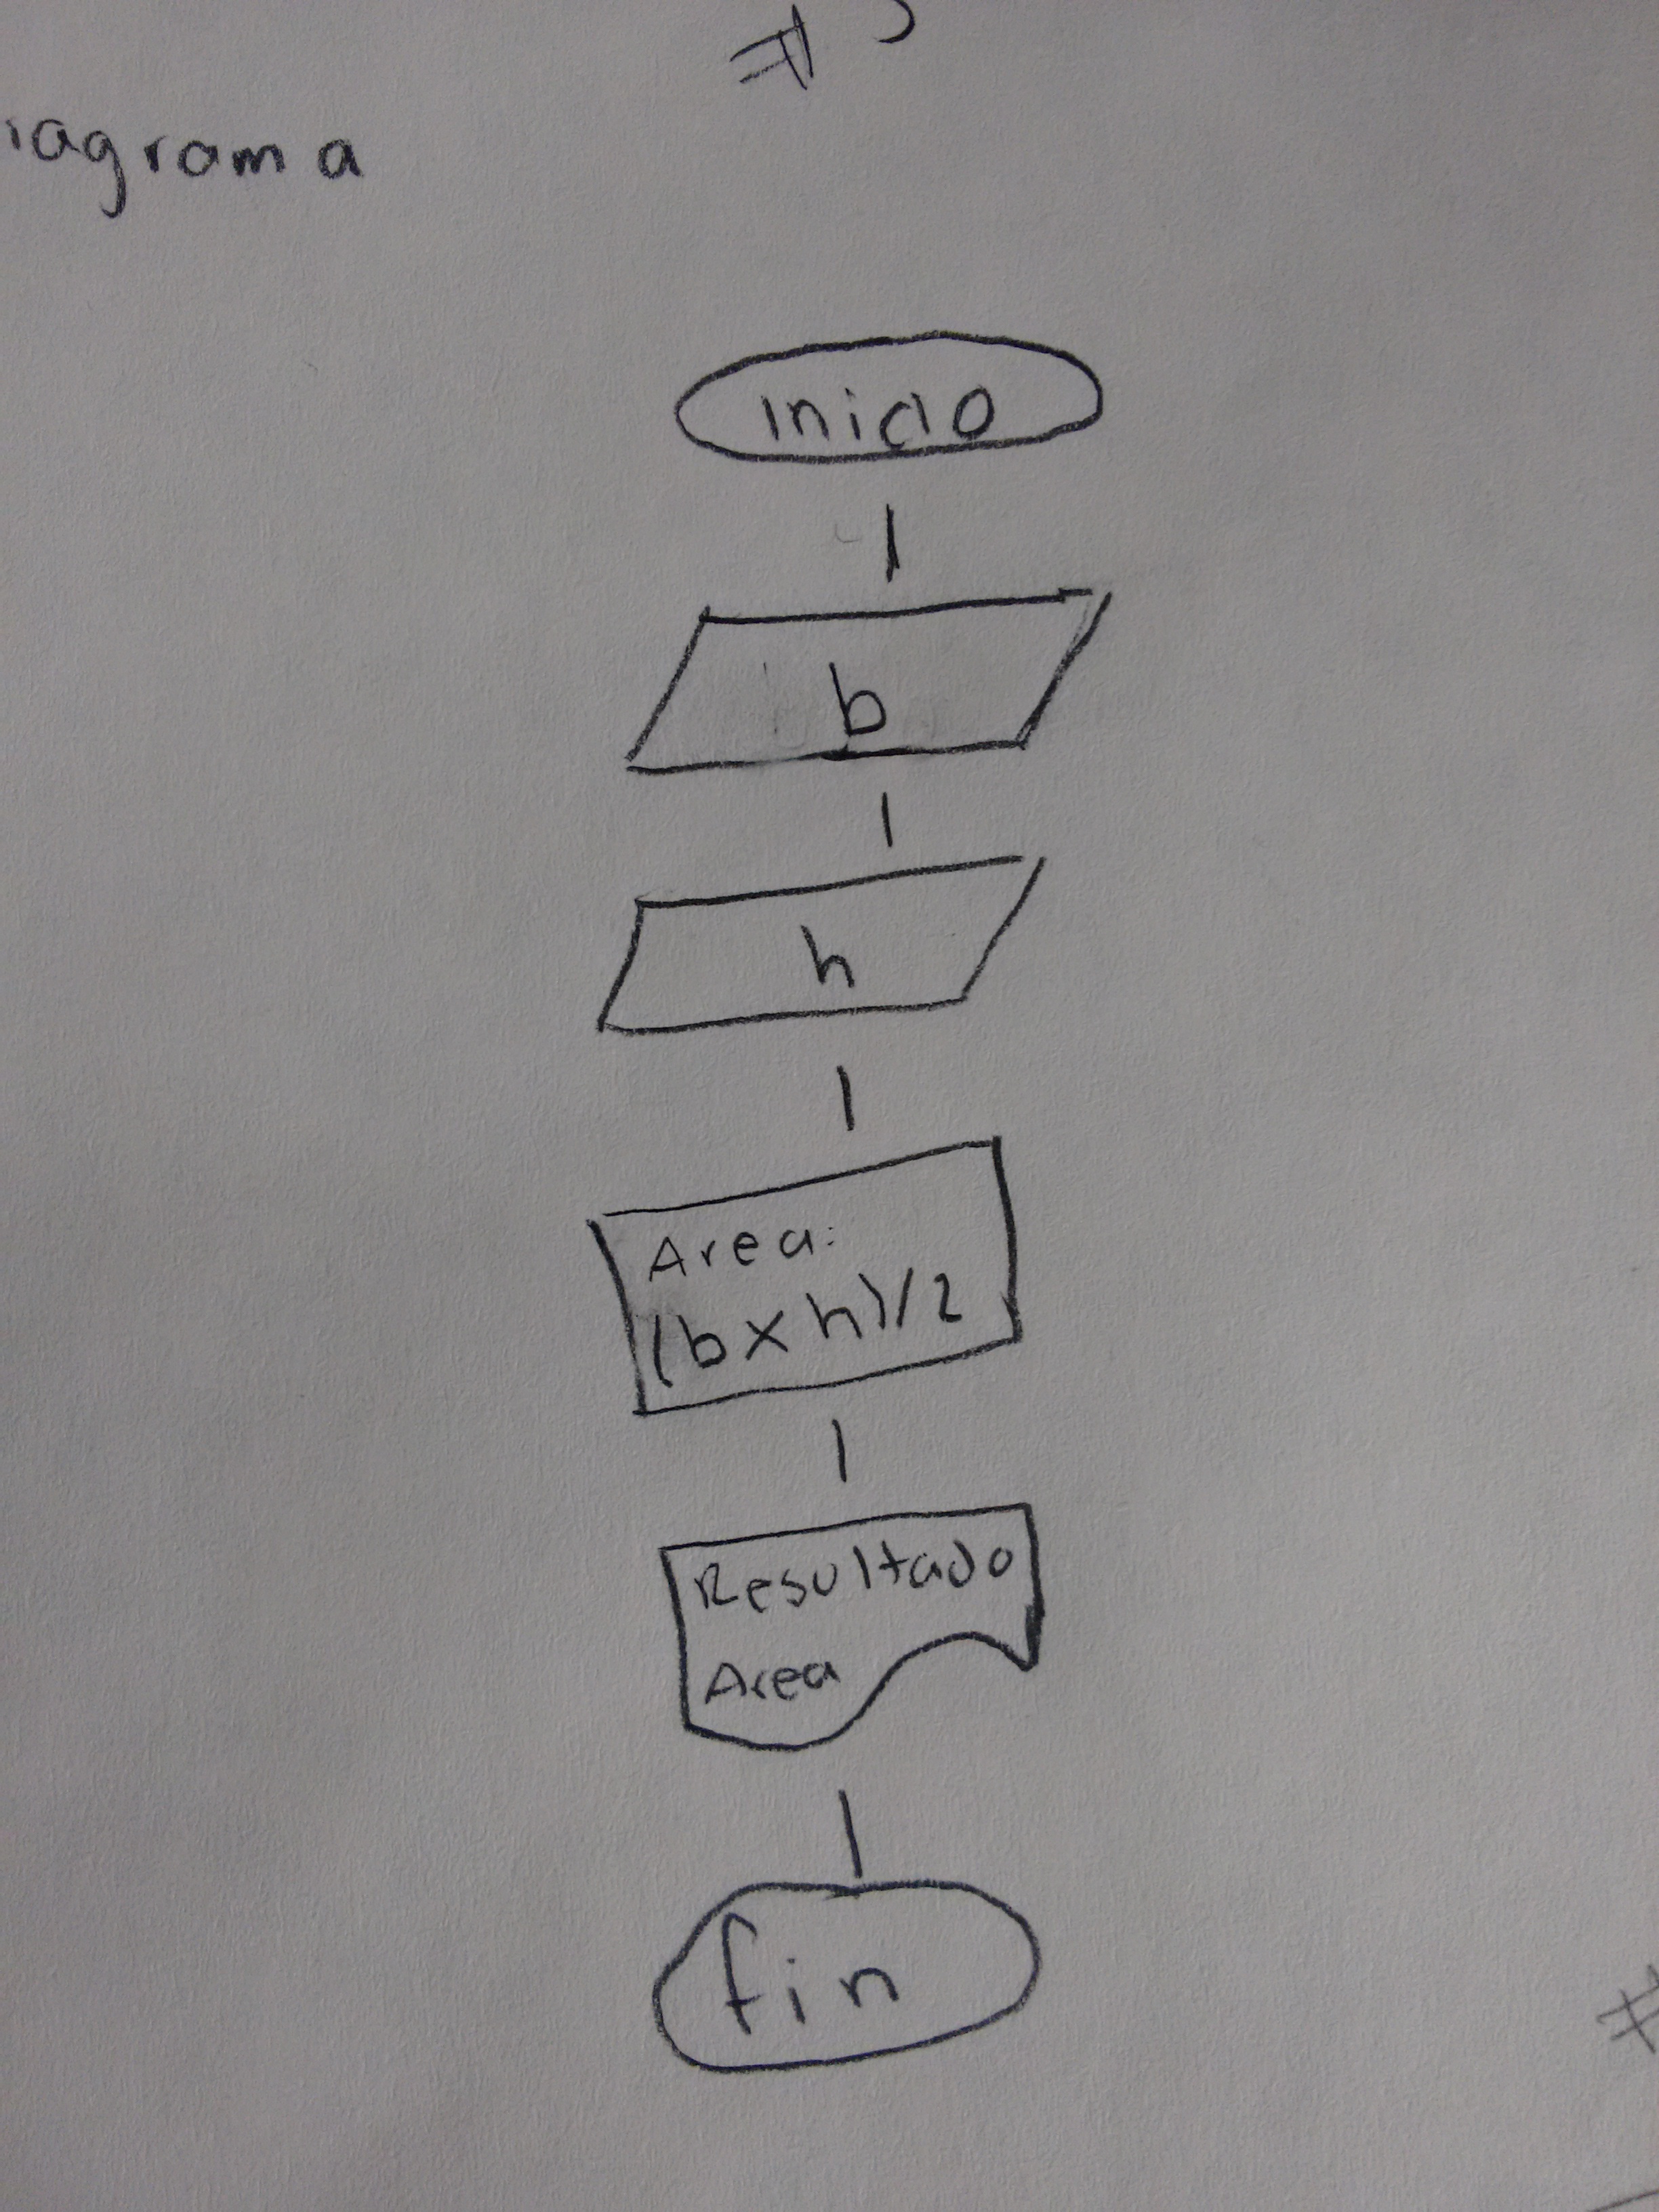 iagrama
Inicio
b
h
Area:
(b x h)/2
Resultado
Area
fin
#